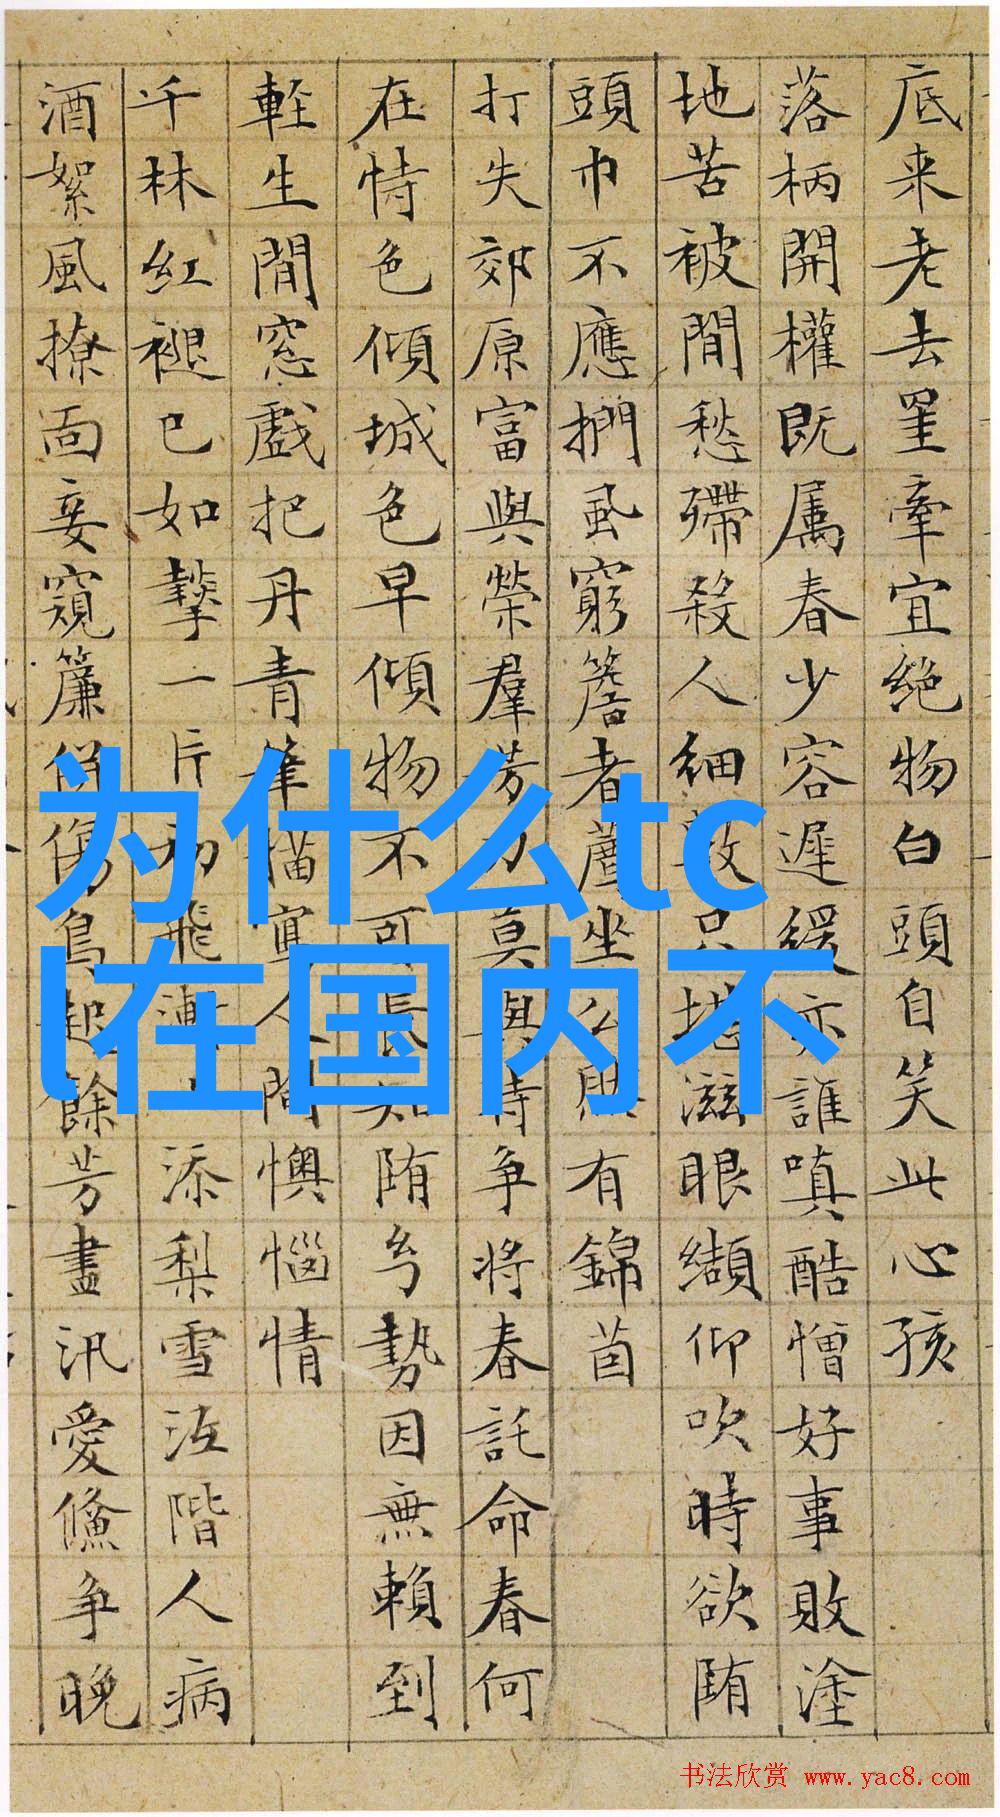 底来老去罣牽宜绝物白頭自笑此心孩
落柄開權既属春少容遲緩亦誰嗔酷憎好事敗塗
地苦被閒愁殢殺人細数只
地滋眼纈仰吹時欲陏
頭巾不應捫虱窮簷者
坐
有錦茵
打失郊原富與榮羣芳力莫與時争將春託命春何
在恃色傾城色早傾物不可長知陏兮勢因無賴到
輊生閒窓戲把丹青筆描
人間懊惱情
千林紅褪已如摯一片初飛漸
添梨雪
階人病
酒絮風撩面妾窺簾
傷鳥起餘芳盡汛愛
争晚
为什么tc
l在国内不
书法欣赏 www.yac8.com